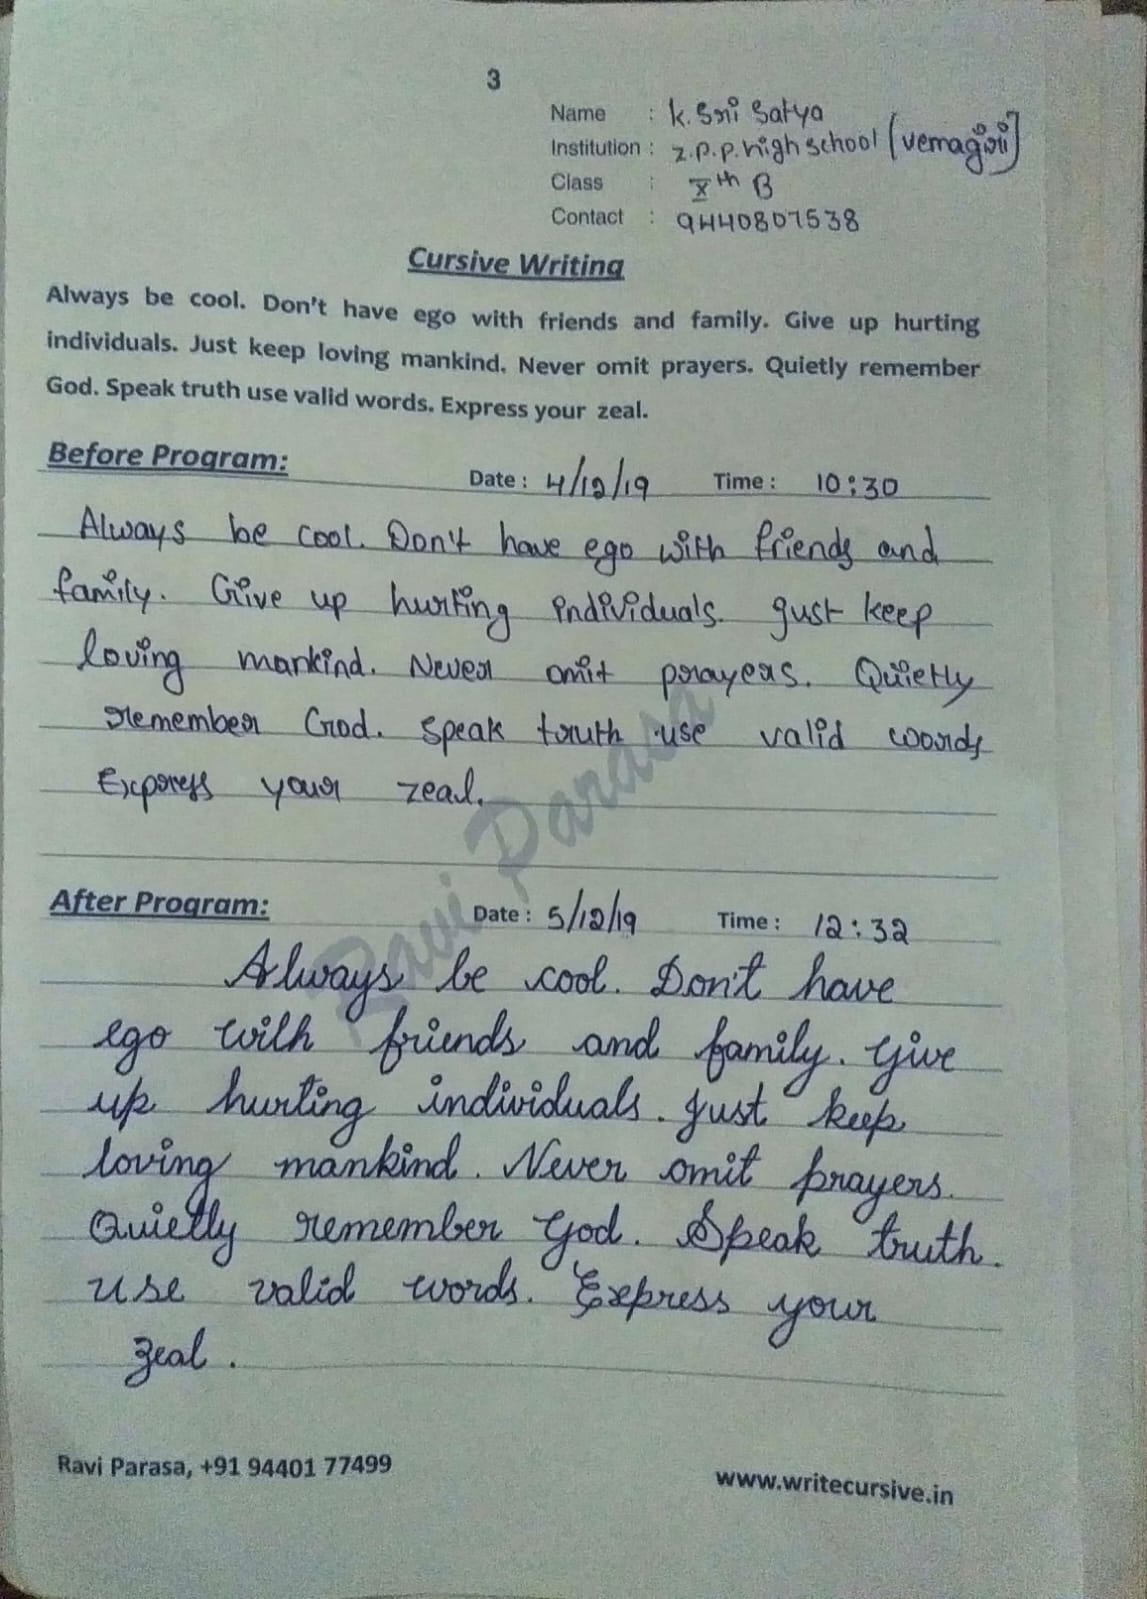 3
Name : K. Sri Satya
Institution : Z.P.P. High School (vemagiri)
Class : Xth B
Contact : 9440807538
Cursive Writing
Always be cool. Don't have ego with friends and family. Give up hurting
individuals. Just keep loving mankind. Never omit prayers. Quietly remember
God. Speak truth use valid words. Express your zeal.
Before Program: Date : 4/12/19 Time : 10:30
Always be cool. Don't have ego with friends and
family. Give up hurting individuals. Just keep
loving mankind. Never omit prayers. Quietly
remember God. Speak truth use valid words
Express your zeal.
Ravi Parasa
After Program: Date : 5/12/19 Time : 12:32
Always be cool. Don't have
ego with friends and family. Give
up hurting individuals. Just keep
loving mankind. Never omit prayers.
Quietly remember God. Speak truth.
use valid words. Express your
zeal.
Ravi Parasa, +91 94401 77499
www.writecursive.in